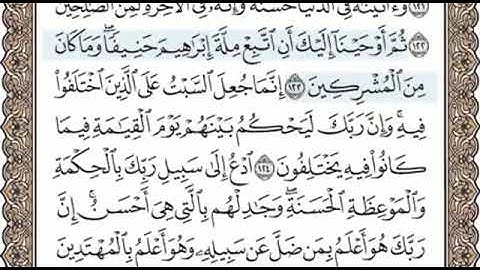 وَءَاتَيْنَٰهُ فِى ٱلدُّنْيَا حَسَنَةً وَإِنَّهُۥ فِى ٱلْءَاخِرَةِ لَمِنَ ٱلصَّٰلِحِينَ
١٢٢ ثُمَّ أَوْحَيْنَآ إِلَيْكَ أَنِ ٱتَّبِعْ مِلَّةَ إِبْرَٰهِيمَ حَنِيفًا ۖ وَمَا كَانَ
مِنَ ٱلْمُشْرِكِينَ ١٢٣ إِنَّمَا جُعِلَ ٱلسَّبْتُ عَلَى ٱلَّذِينَ ٱخْتَلَفُوا۟
فِيهِ ۚ وَإِنَّ رَبَّكَ لَيَحْكُمُ بَيْنَهُمْ يَوْمَ ٱلْقِيَٰمَةِ فِيمَا
كَانُوا۟ فِيهِ يَخْتَلِفُونَ ١٢٤ ٱدْعُ إِلَىٰ سَبِيلِ رَبِّكَ بِٱلْحِكْمَةِ
وَٱلْمَوْعِظَةِ ٱلْحَسَنَةِ ۖ وَجَٰدِلْهُم بِٱلَّتِى هِىَ أَحْسَنُ ۚ إِنَّ
رَبَّكَ هُوَ أَعْلَمُ بِمَن ضَلَّ عَن سَبِيلِهِۦ ۖ وَهُوَ أَعْلَمُ بِٱلْمُهْتَدِينَ